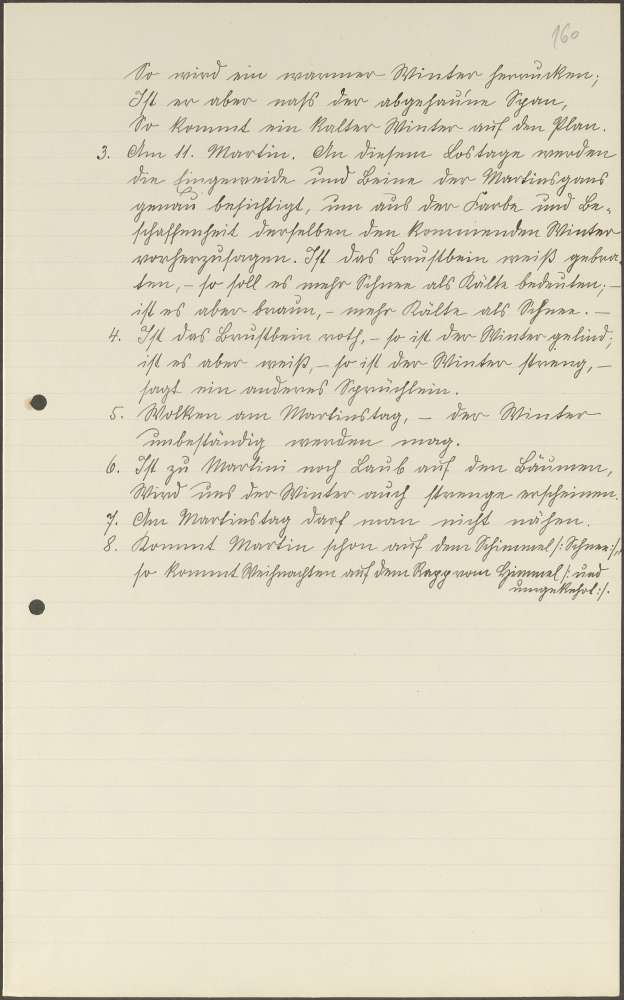 160
So wird ein warmer Winter herrucken;
Ist er aber naß der abgehau'ne Span,
So kommt ein kalter Winter auf den Plan.
3. Am 11. Martin. An diesem Lostage werden
die Eingeweide und Beine der Martinsgans
genau besichtigt, um aus der Farbe und Be-
schaffenheit derselben den kommenden Winter
vorherzusagen. Ist das Brustbein weiß gebra-
ten, – so soll es mehr Schnee als Kälte bedeuten; –
ist es aber braun, – mehr Kälte als Schnee. –
4. Ist das Brustbein roth, – so ist der Winter gelind;
ist es aber weiß, – so ist der Winter streng, –
sagt ein anderes Sprüchlein.
5. Wolken am Martinstag, – der Winter
unbeständig werden mag.
6. Ist zu Martini noch Laub auf den Bäumen,
Wird uns der Winter auch strenge erscheinen.
7. Am Martinstag darf man nicht nähen.
8. Kommt Martin schon auf dem Schimmel /: Schnee :/,
so kommt Weihnachten auf dem Rapp vom Himmel /: und
umgekehrt :/.